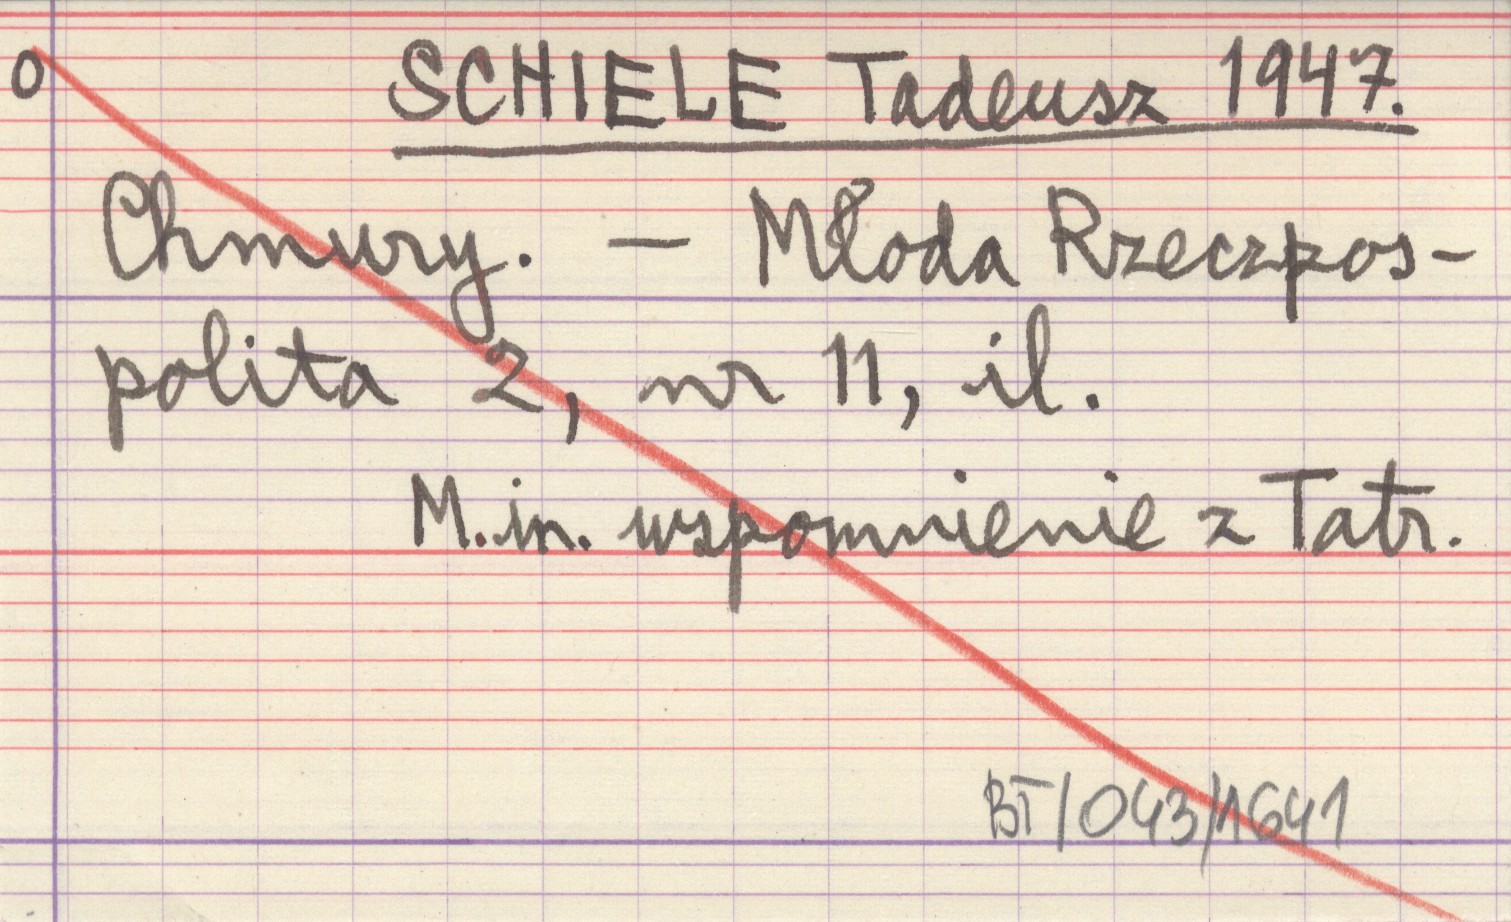 O
SCHIELE Tadeusz 1947.
Chmury. – Młoda Rzeczpos-
polita 2, nr 11, il.
M.in. wspomnienie z Tatr.
BT/043/1641